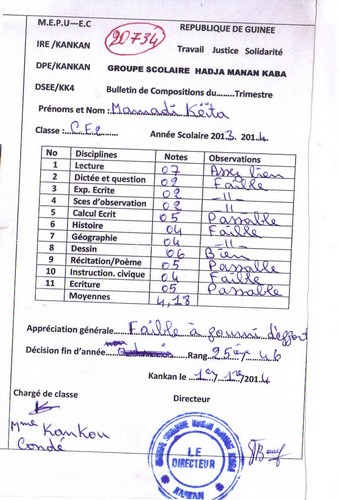 M.E.P.U—E.C REPUBLIQUE DE GUINEE
20734
IRE /KANKAN Travail Justice Solidarité
DPE/KANKAN GROUPE SCOLAIRE HADJA MANAN KABA
DSEE/KK4 Bulletin de Compositions du........Trimestre
Prénoms et Nom : Mamadi Kéïta
Classe : C.E2 Année Scolaire 2013. 2014
No Disciplines Notes Observations
1 Lecture 07 Assez bien
2 Dictée et question 02 Faille
3 Exp. Ecrite 02 -//-
4 Sces d'observation 02 -//-
5 Calcul Ecrit 05 Passable
6 Histoire 04 Faille
7 Géographie 04 -//-
8 Dessin 06 Bien
9 Récitation/Poème 05 Passable
10 Instruction. civique 04 Faille
11 Ecriture 05 Passable
Moyennes 4,18
Appréciation générale Faille à fournir d'effort
Décision fin d'année Rang 25è /46
Kankan le 1er/ /2014
Chargé de classe Directeur
Mme Kankou
Condé
GROUPE SCOLAIRE HADJA MANAN KABA
LE
DIRECTEUR
KANKAN